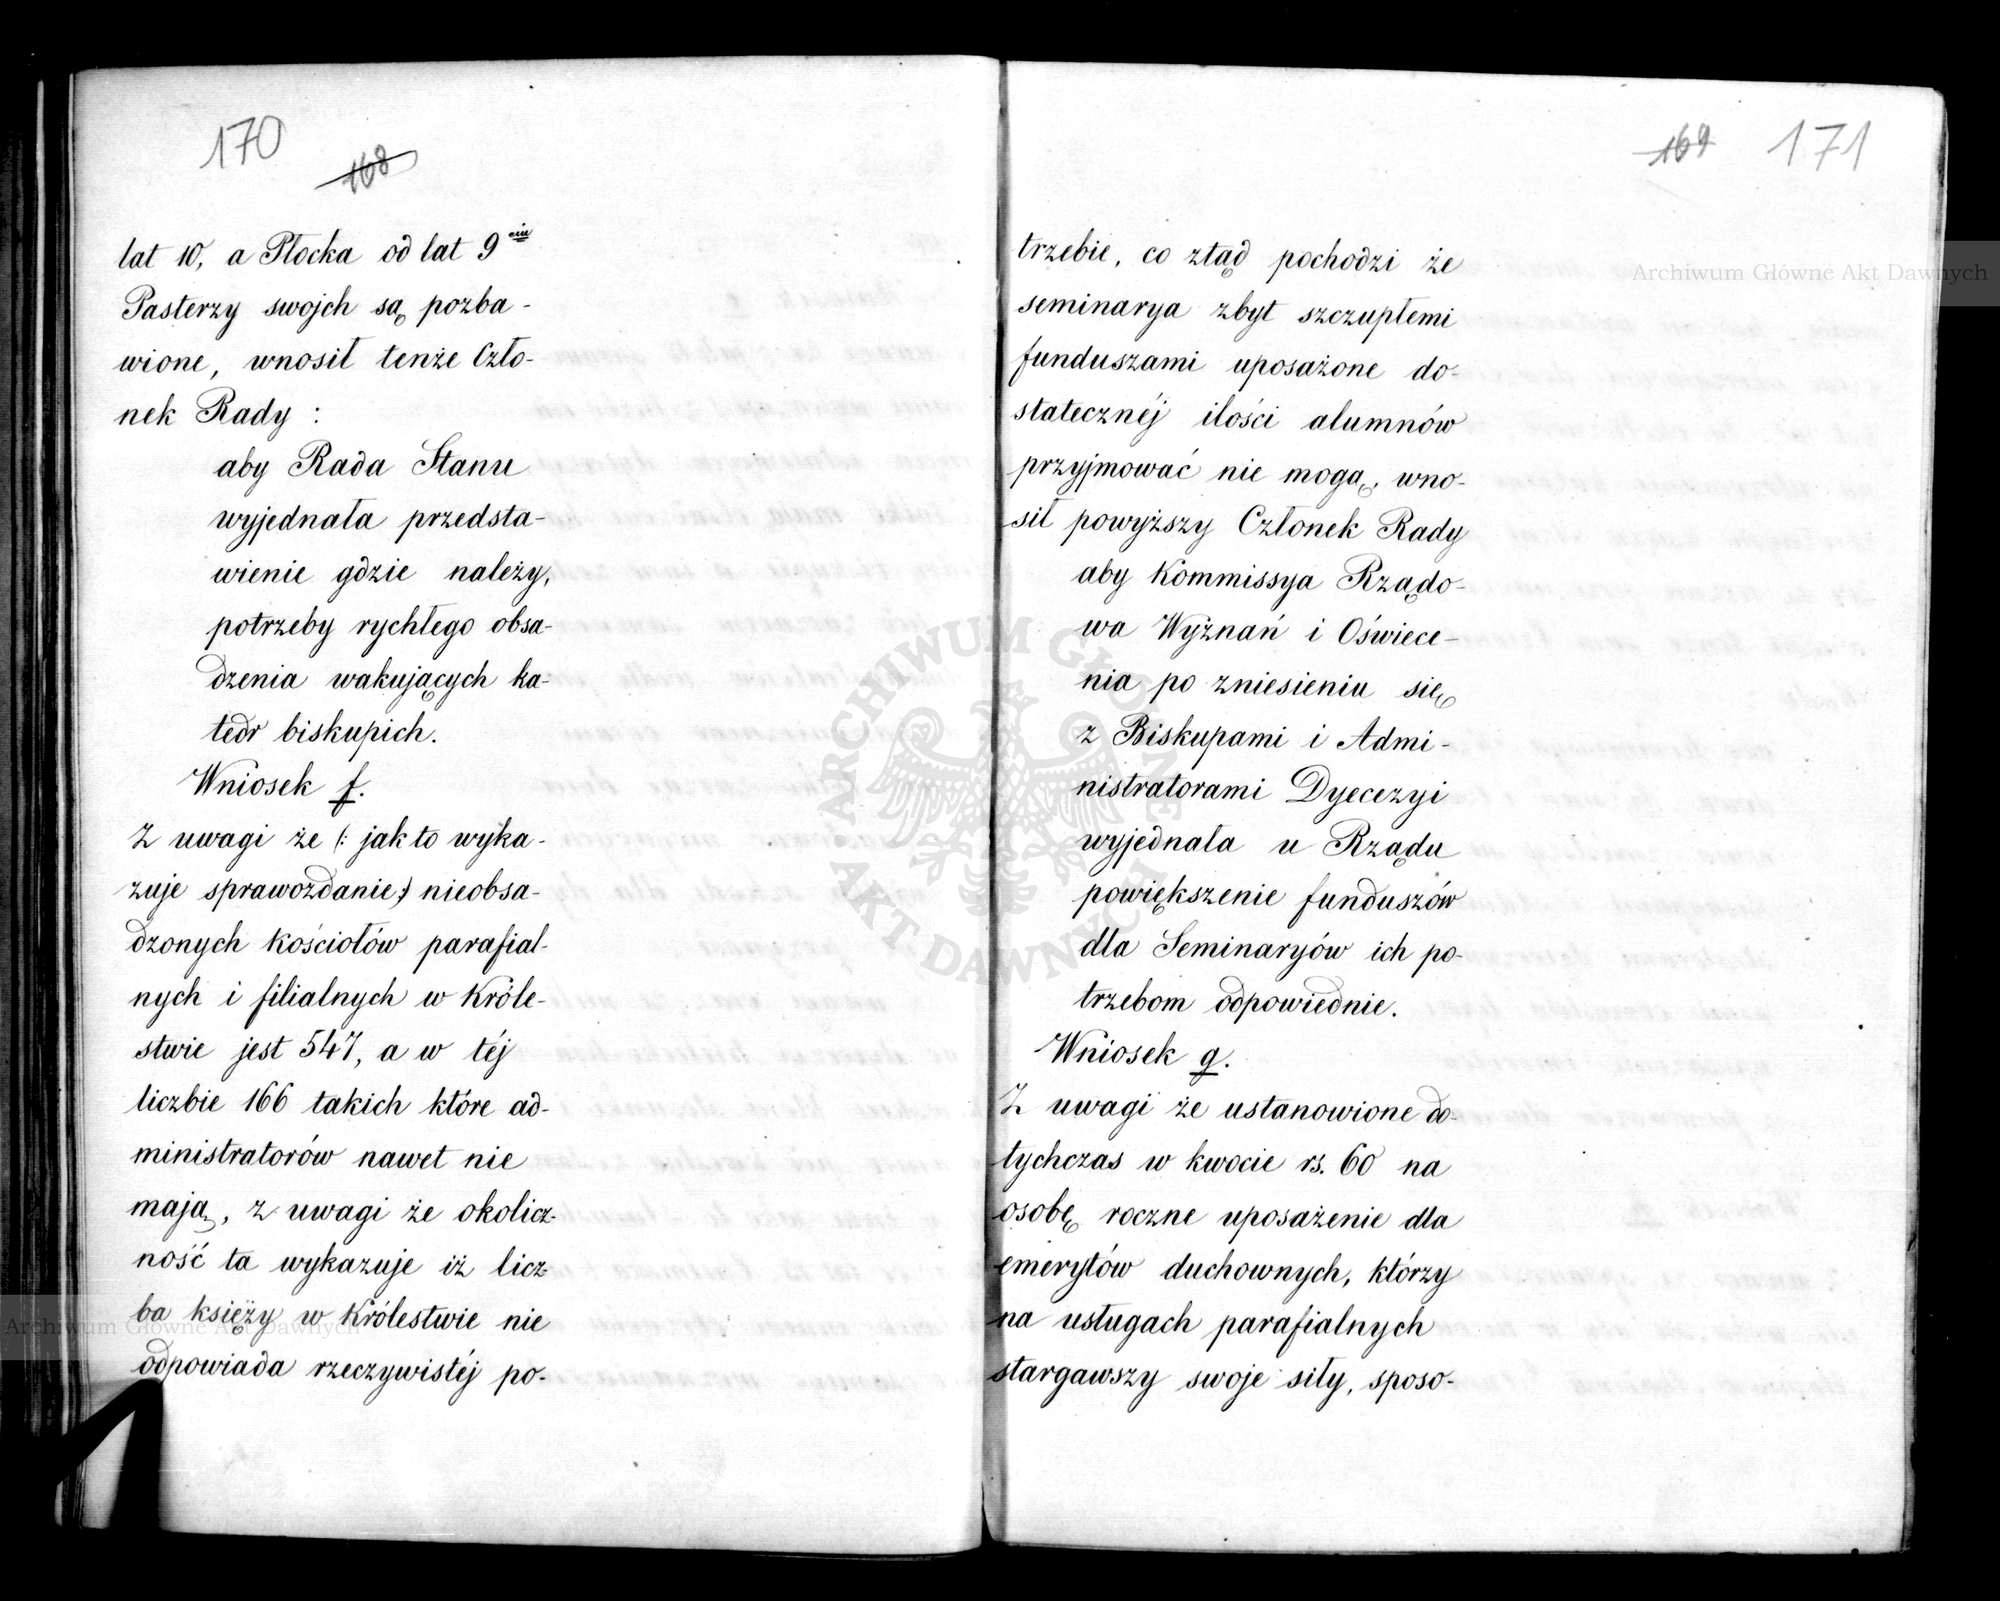 170
168
lat 10, a Płocka od lat 9ciu
Pasterzy swojch są pozba-
wione, wnosił tenże Czło-
nek Rady :
aby Rada Stanu
wyjednała przedsta-
wienie gdzie należy,
potrzeby rychłego obsa-
dzenia wakujących ka-
tedr biskupich.
Wniosek f.
Z uwagi że (: jak to wyka-
zuje sprawozdanie :) nieobsa-
dzonych kościołów parafial-
nych i filialnych w Króle-
stwie jest 547, a w téj
liczbie 166 takich które ad-
ministratorów nawet nie
mają, z uwagi że okolicz-
ność ta wykazuje iż licz-
ba księży w Królestwie nie
odpowiada rzeczywistéj po-
169 171
trzebie, co ztąd pochodzi że
seminarya zbyt szczupłemi
funduszami uposażone do-
statecznéj ilości alumnów
przyjmować nie mogą, wno-
sił powyższy Członek Rady
aby Kommissya Rządo-
wa Wyznań i Oświece-
nia po zniesieniu się
z Biskupami i Admi-
nistratorami Dyecezyi
wyjednała u Rządu
powiększenie funduszów
dla Seminaryów ich po-
trzebom odpowiednie.
Wniosek g.
Z uwagi że ustanowione do-
tychczas w kwocie rs. 60 na
osobę roczne uposażenie dla
emerytów duchownych, którzy
na usługach parafialnych
stargawszy swoje siły, sposo-
Archiwum Główne Akt Dawnych
Archiwum Główne Akt Dawnych
ARCHIWUM GŁÓWNE
AKT DAWNYCH